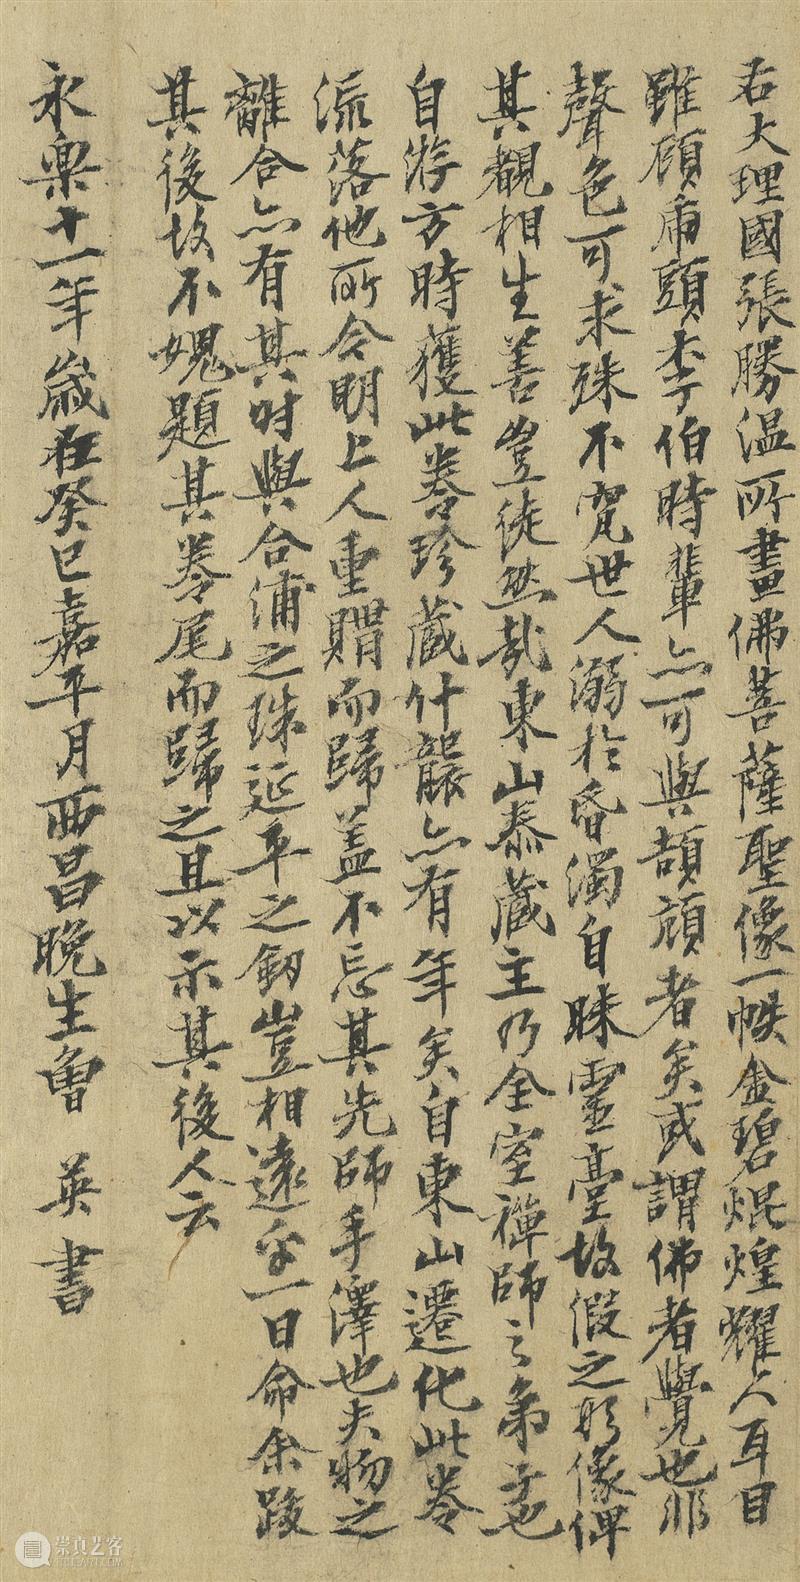 右大理國張勝温所畫佛菩薩聖像一帙金碧焜煌耀人耳目
雖顧虎頭李伯時輩亦可與頡頏者矣或謂佛者覺也非
聲色可求殊不究世人溺於昏濁自昧靈臺故假之形像俾
其覩相生善豈徒然哉東山泰藏主乃全室禪師之弟子也
自游方時獲此卷珍藏什襲亦有年矣自東山遷化此卷
流落他所今明上人重購而歸盖不忘其先師手澤也夫物之
離合亦有其时與合浦之珠延平之劒豈相遠乎一日命余跋
其後故不媿題其卷尾而歸之且以示其後人云
永樂十一年歲在癸巳嘉平月西昌晚生曾英書
崇真艺客